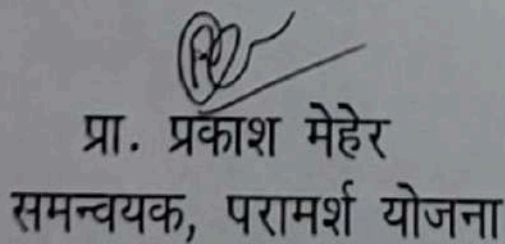 प्रा. प्रकाश मेहेर
समन्वयक, परामर्श योजना